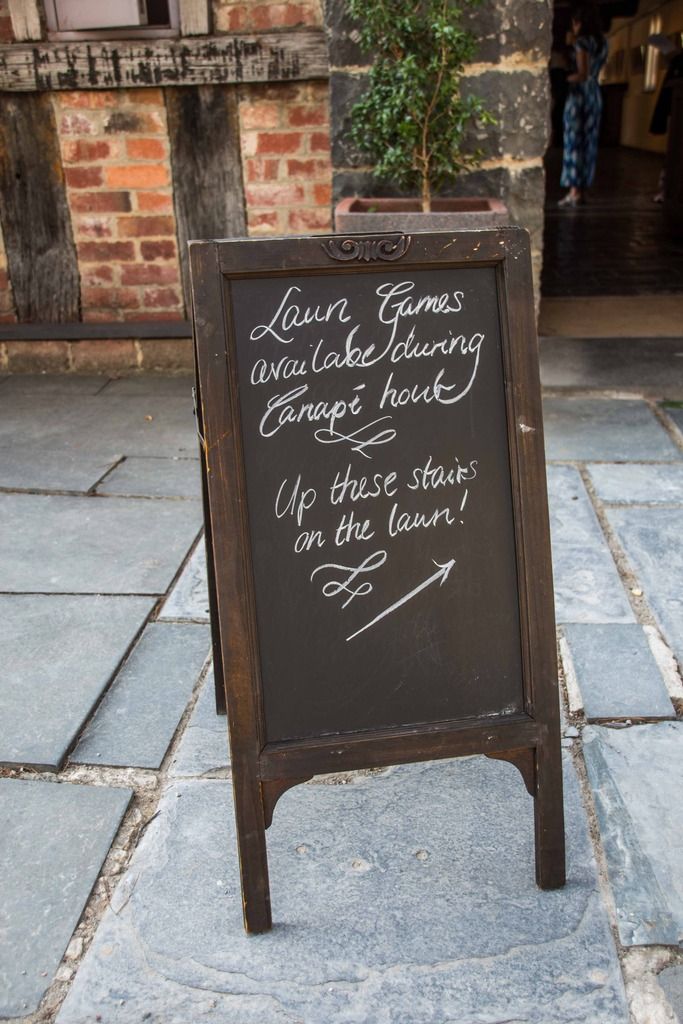 Lawn Games
availabe during
Canapé hour
Up these stairs
on the lawn!